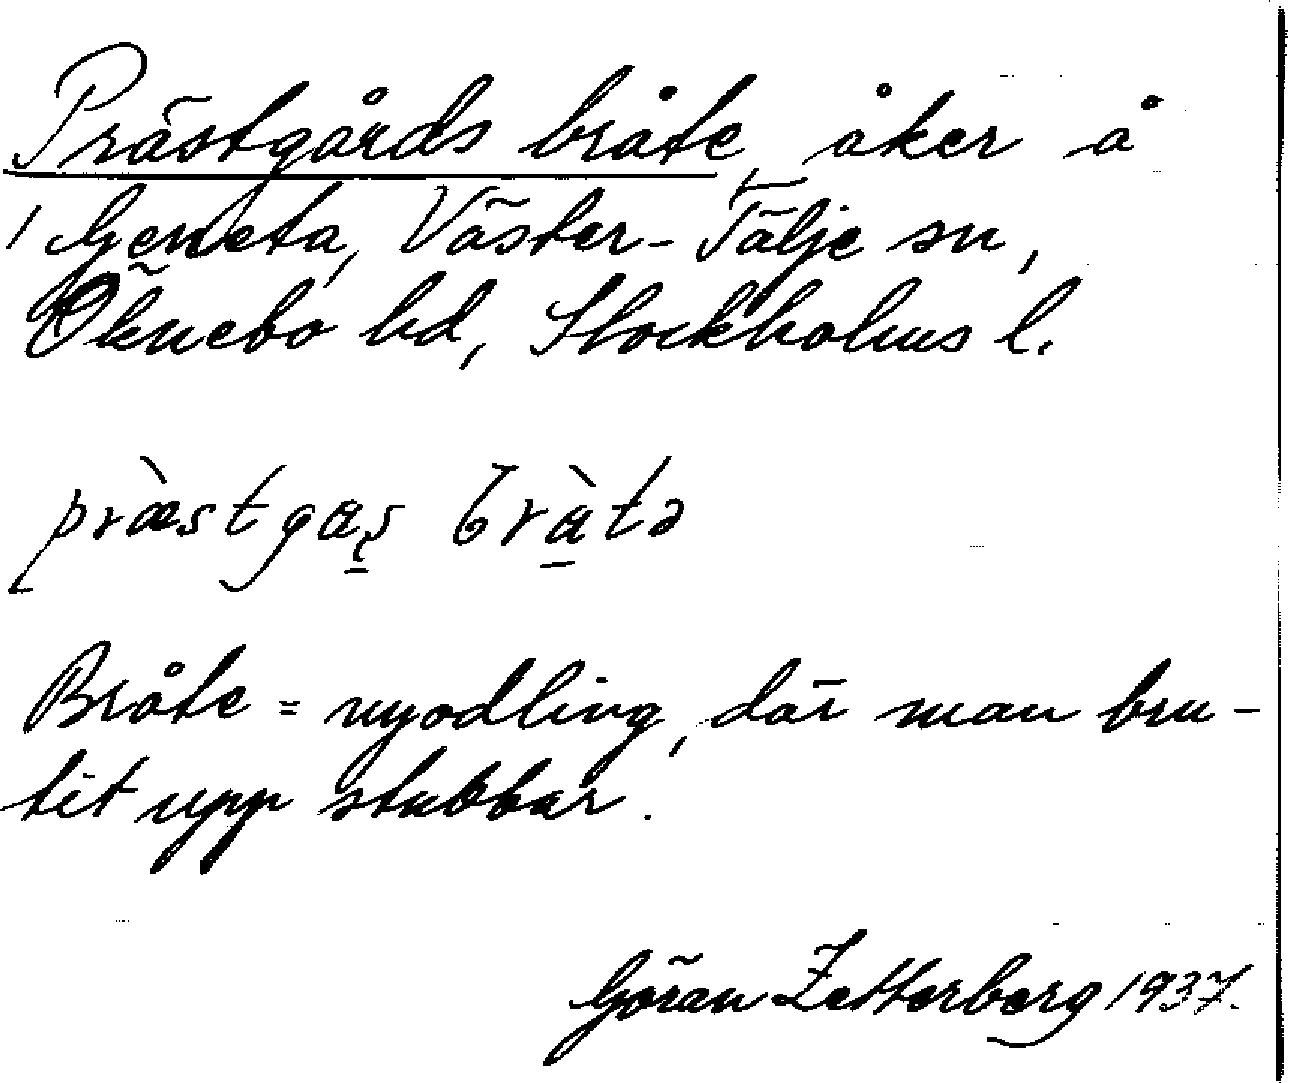 Prästgårds bråte, åker å
1 Geneta, Väster-Tälje sn,
Öknebo hd, Stockholms l.
præ̀stgɑs brɑ̀tə
Bråte = nyodling, där man bru-
tit upp stubbar.
Göran Zetterberg 1937.